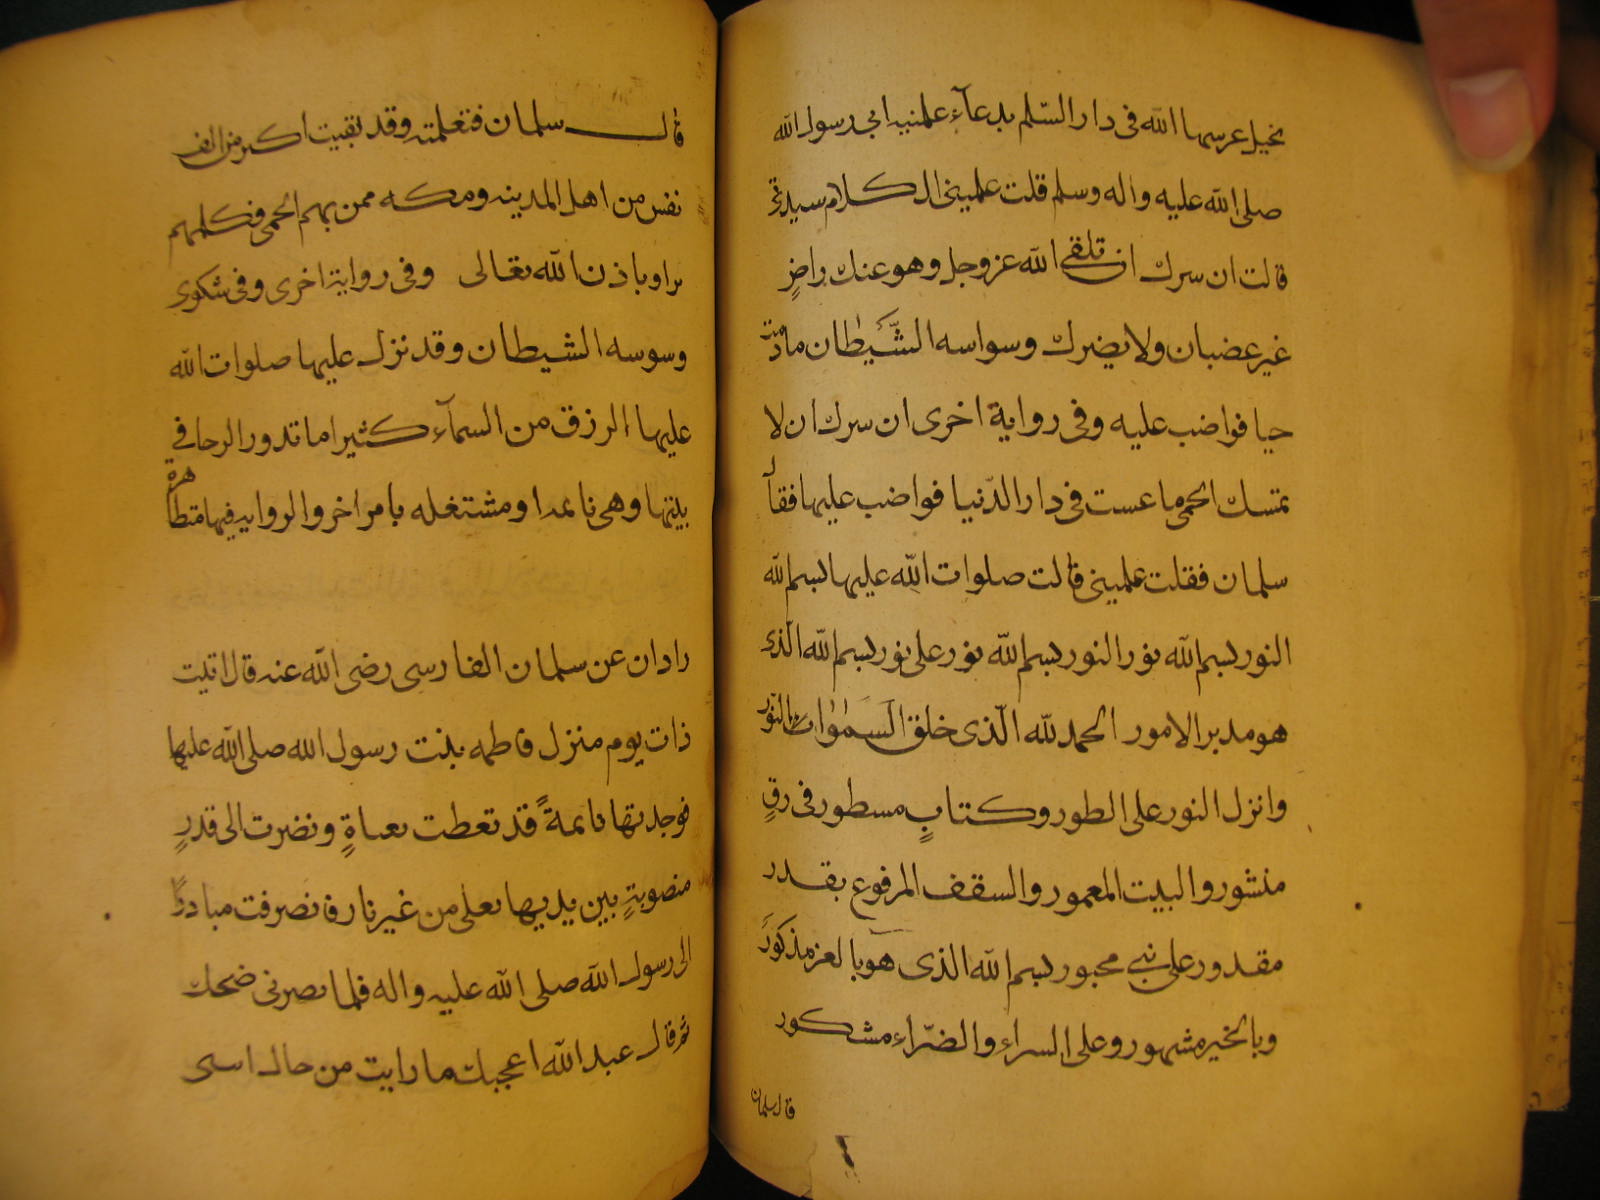 نخيل غرسها الله فى دار السّلم بدعآء علمنيه ابى رسول الله
صلى الله عليه واله وسلم قلت علمينى الكلام سيدتى
قالت ان سرك ان تلقى الله عز وجل وهو عنك راضٍ
غير عضبان ولا يضرك وسواسه الشّيطان مادمت
حيا فواضب عليه وفى رواية اخرى ان سرك ان لا
تمسك الحمى ما عست فى دار الدّنيا فواضب عليها فقال
سلمان فقلت علمينى قالت صلوات الله عليها بسم الله
النور بسم الله نور النور بسم الله نور على نور بسم الله الّذى
هو مدبر الامور الحمد لله الّذى خلق السّمٰوات النّور
وانزل النور على الطور وكتابٍ مسطور فى رقٍ
منشور والبيت المعمور والسقف المرفوع بقدر
مقدور على نبى محبور بسم الله الذى هو بالعز مذكور
وبالخير مشهور وعلى السراء والضّراء مشكور
قال سلمان
قال سلمان فتعلمته وقد بقيت اكثر من الف
نفس من اهل المدينه ومكه ممن بهم الحمى فكلهم
براو باذن الله تعالى وفى رواية اخرى وفى شكوى
وسوسه الشيطان وقد نزل عليها صلوات الله
عليها الرزق من السمآء كثيرا ما تدور الرحا فى
بيتها وهى نايمه او مشتغله بامر اخر والروايه فيها متظاهرة
زادان عن سلمان الفارسى رضى الله عنه قال اتيت
ذات يوم منزل فاطمه بنت رسول الله صلى الله عليها
فوجدتها نايمةً قد تغطت بعباةٍ ونضرت الى قدرٍ
منصوبةٍ بين يديها تغلى من غير نار فانصرفت مبادرًا
الى رسول الله صلى الله عليه واله فلما بصرنى ضحك
ثم قال عبد الله اعجبك ما رايت من حال ابنتى